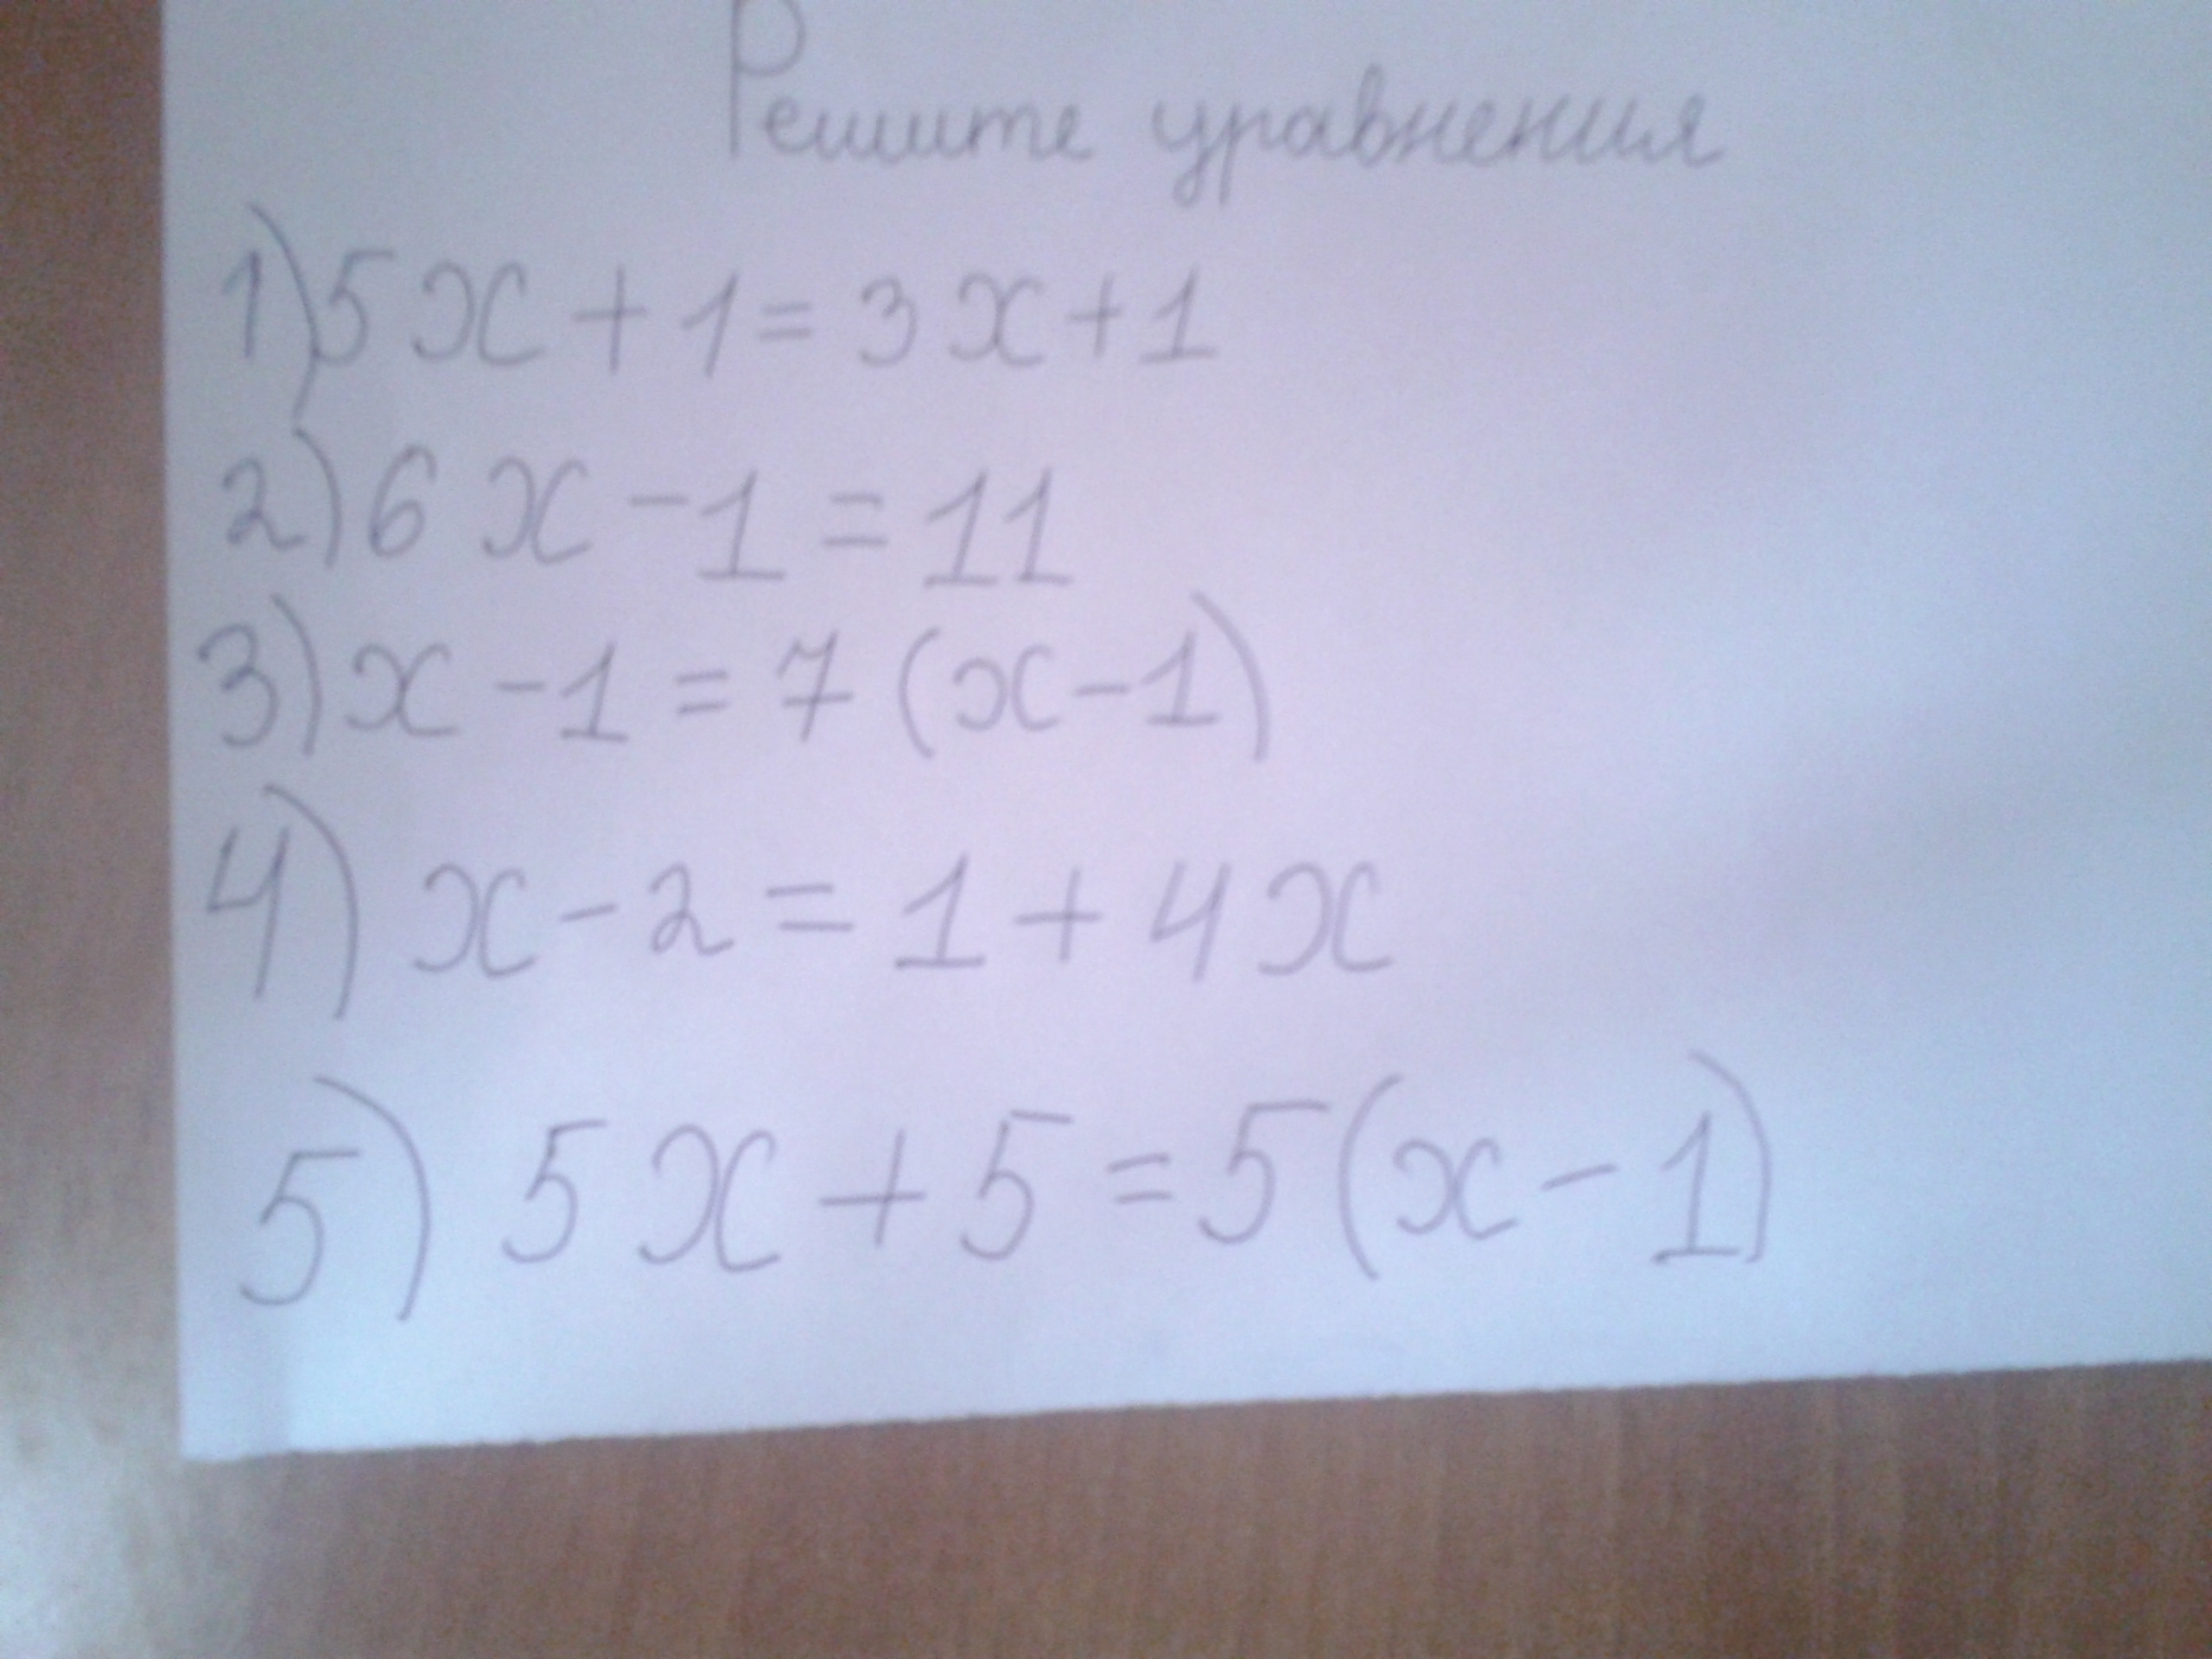 Решите уравнения
1) 5x + 1 = 3x + 1
2) 6x - 1 = 11
3) x - 1 = 7 (x - 1)
4) x - 2 = 1 + 4x
5) 5x + 5 = 5(x - 1)